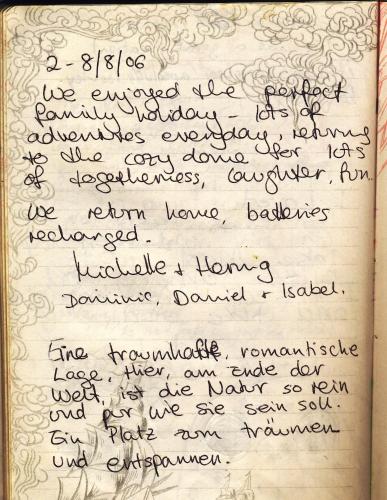 2-8/8/06
We enjoyed the perfect
family holiday - lots of
adventures everyday, returning
to the cozy dome for lots
of togetherness, laughter, fun.
We return home, batteries
recharged.
Michelle + Henng
Dominic, Daniel + Isabel.
Eine traumhafte, romantische
Lage, Hier, am Ende der
Welt, ist die Natur so rein
und pur wie sie sein soll.
Ein Platz zum träumen
und entspannen.